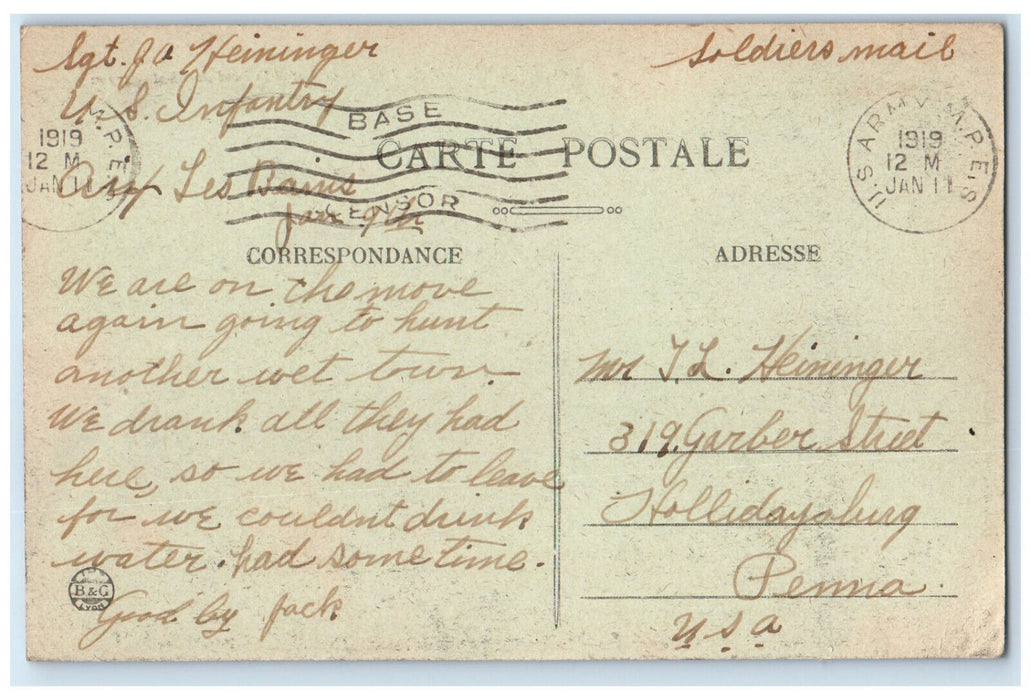 Sgt. J A Heininger
Soldiers mail
U. S. Infantry
BASE
CENSOR
M.P.E.S
1919
12 M
JAN 11
U.S. ARMY M.P.E.S
1919
12 M
JAN 11
CARTE POSTALE
Les Bains
Jan 9th
CORRESPONDANCE
ADRESSE
We are on the move
again going to hunt
another wet town.
We drank all they had
here, so we had to leave
for we couldnt drink
water. had some time.
Good by Jack
B & G
LYON
Mr T. L. Heininger
319. Garber Street
Hollidaysburg
Penna.
U.S.A